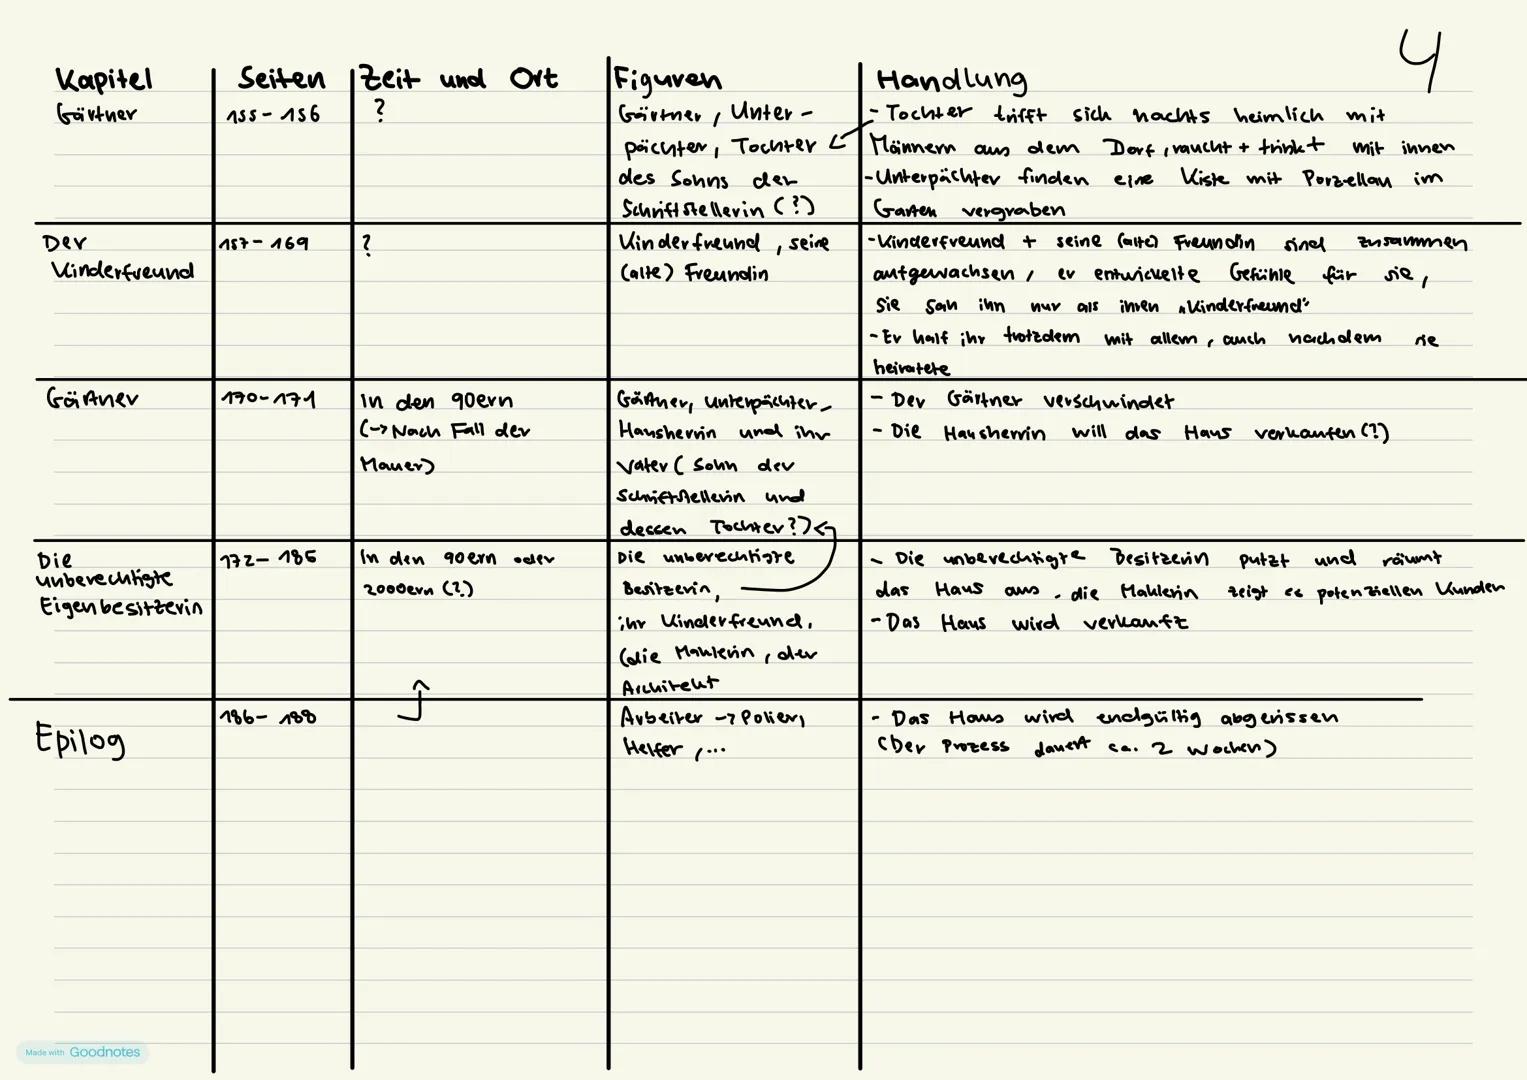 4
Kapitel Seiten Zeit und Ort Figuren Handlung
Gärtner 155-156 ? Gärtner, Unter- - Tochter trifft sich nachts heimlich mit
pächter, Tochter Männern aus dem Dorf, raucht + trinkt mit ihnen
des Sohns der -Unterpächter finden eine Kiste mit Porzellan im
Schriftstellerin (?) Garten vergraben
Der 157-169 ? Kinderfreund, seine -Kinderfreund + seine (alte) Freundin sind zusammen
Kinderfreund (alte) Freundin aufgewachsen, er entwickelte Gefühle für sie,
sie sah ihn nur als ihren „Kinderfreund"
-Er half ihr trotzdem mit allem, auch nachdem sie
heiratete
Gärtner 170-171 In den 90ern Gärtner, Unterpächter, - Der Gärtner verschwindet
(→ Nach Fall der Hausherrin und ihr - Die Hausherrin will das Haus verkaufen (?)
Mauer) Vater (Sohn der
Schriftstellerin und
dessen Tochter?)
Die 172-185 In den 90ern oder Die unberechtigte - Die unberechtigte Besitzerin putzt und räumt
unberechtigte 2000ern (?) Besitzerin, das Haus aus, die Maklerin zeigt es potenziellen Kunden
Eigenbesitzerin ihr Kinderfreund, -Das Haus wird verkauft
(die Maklerin, der
Architekt
Epilog 186-188 Arbeiter → Polier, - Das Haus wird endgültig abgerissen
Helfer, ... (Der Prozess dauert ca. 2 Wochen)
Made with Goodnotes